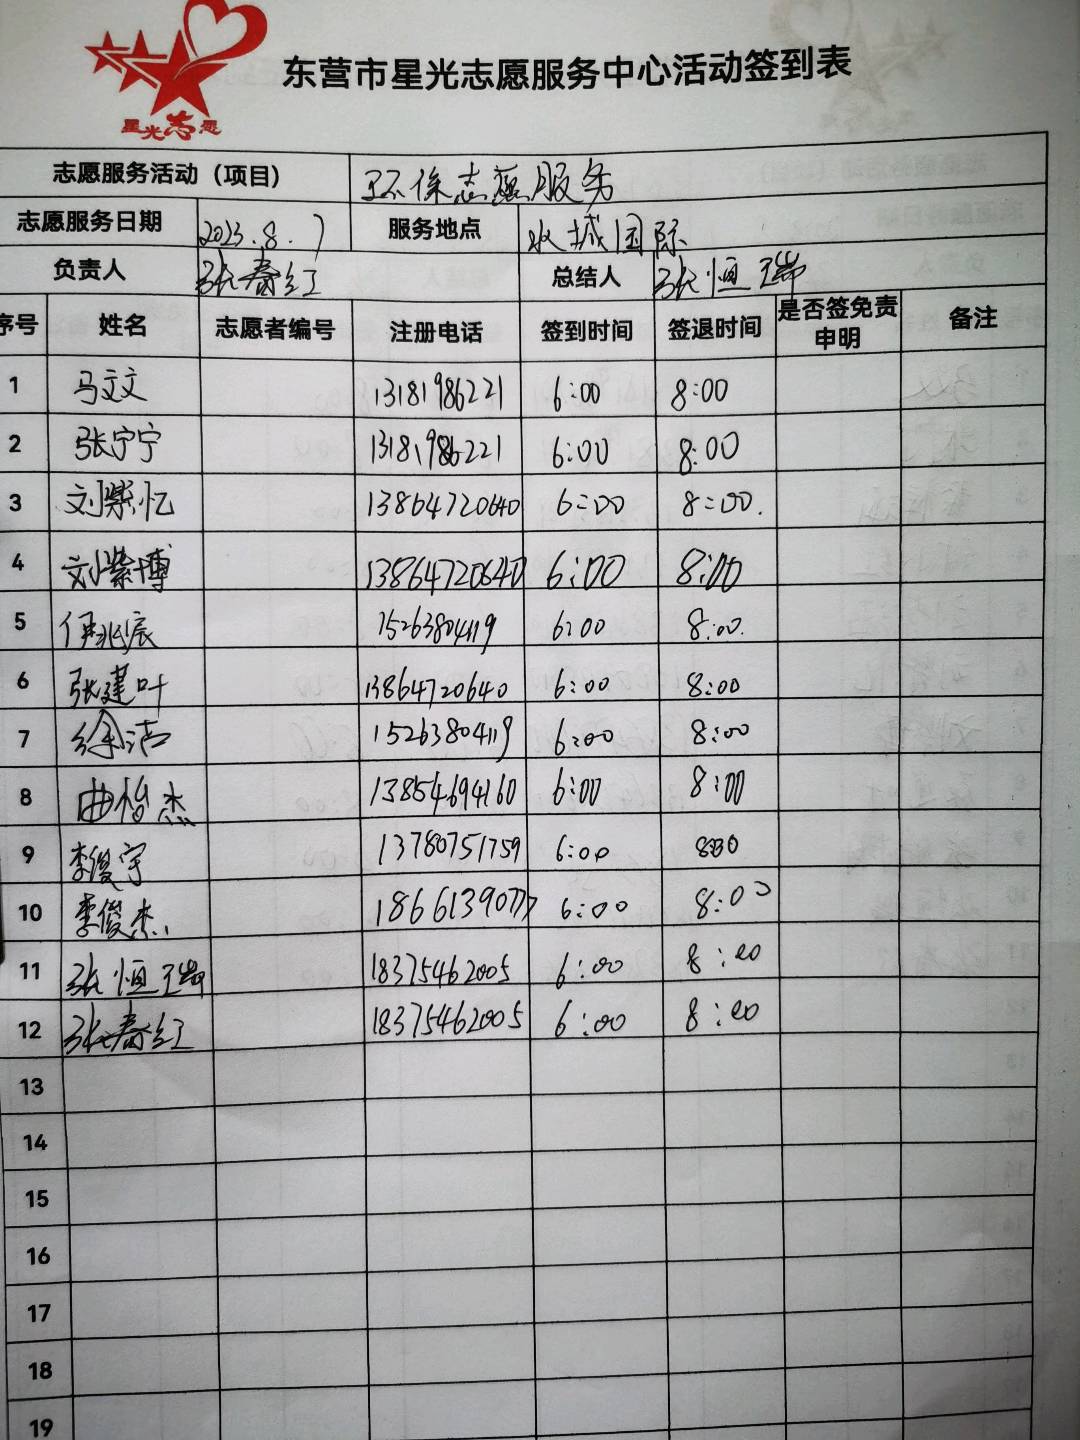 星光志愿
东营市星光志愿服务中心活动签到表
志愿服务活动（项目） 环保志愿服务
志愿服务日期 2023.8.7 服务地点 水城国际
负责人 张春红 总结人 张恒瑞
序号 姓名 志愿者编号 注册电话 签到时间 签退时间 是否签免责申明 备注
1 马文文 13181986221 6:00 8:00
2 张宁宁 13181986221 6:00 8:00
3 刘紫忆 13864720640 6:00 8:00.
4 刘紫博 13864720640 6:00 8:00
5 伊兆宸 15263804119 6:00 8:00.
6 张建叶 13864720640 6:00 8:00
7 徐洁 15263804119 6:00 8:00
8 曲怡杰 13854694160 6:00 8:00
9 李俊宇 13780751759 6:00 8:00
10 李俊杰 18661390777 6:00 8:00
11 张恒瑞 18375462005 6:00 8:00
12 张春红 18375462005 6:00 8:00
13
14
15
16
17
18
19